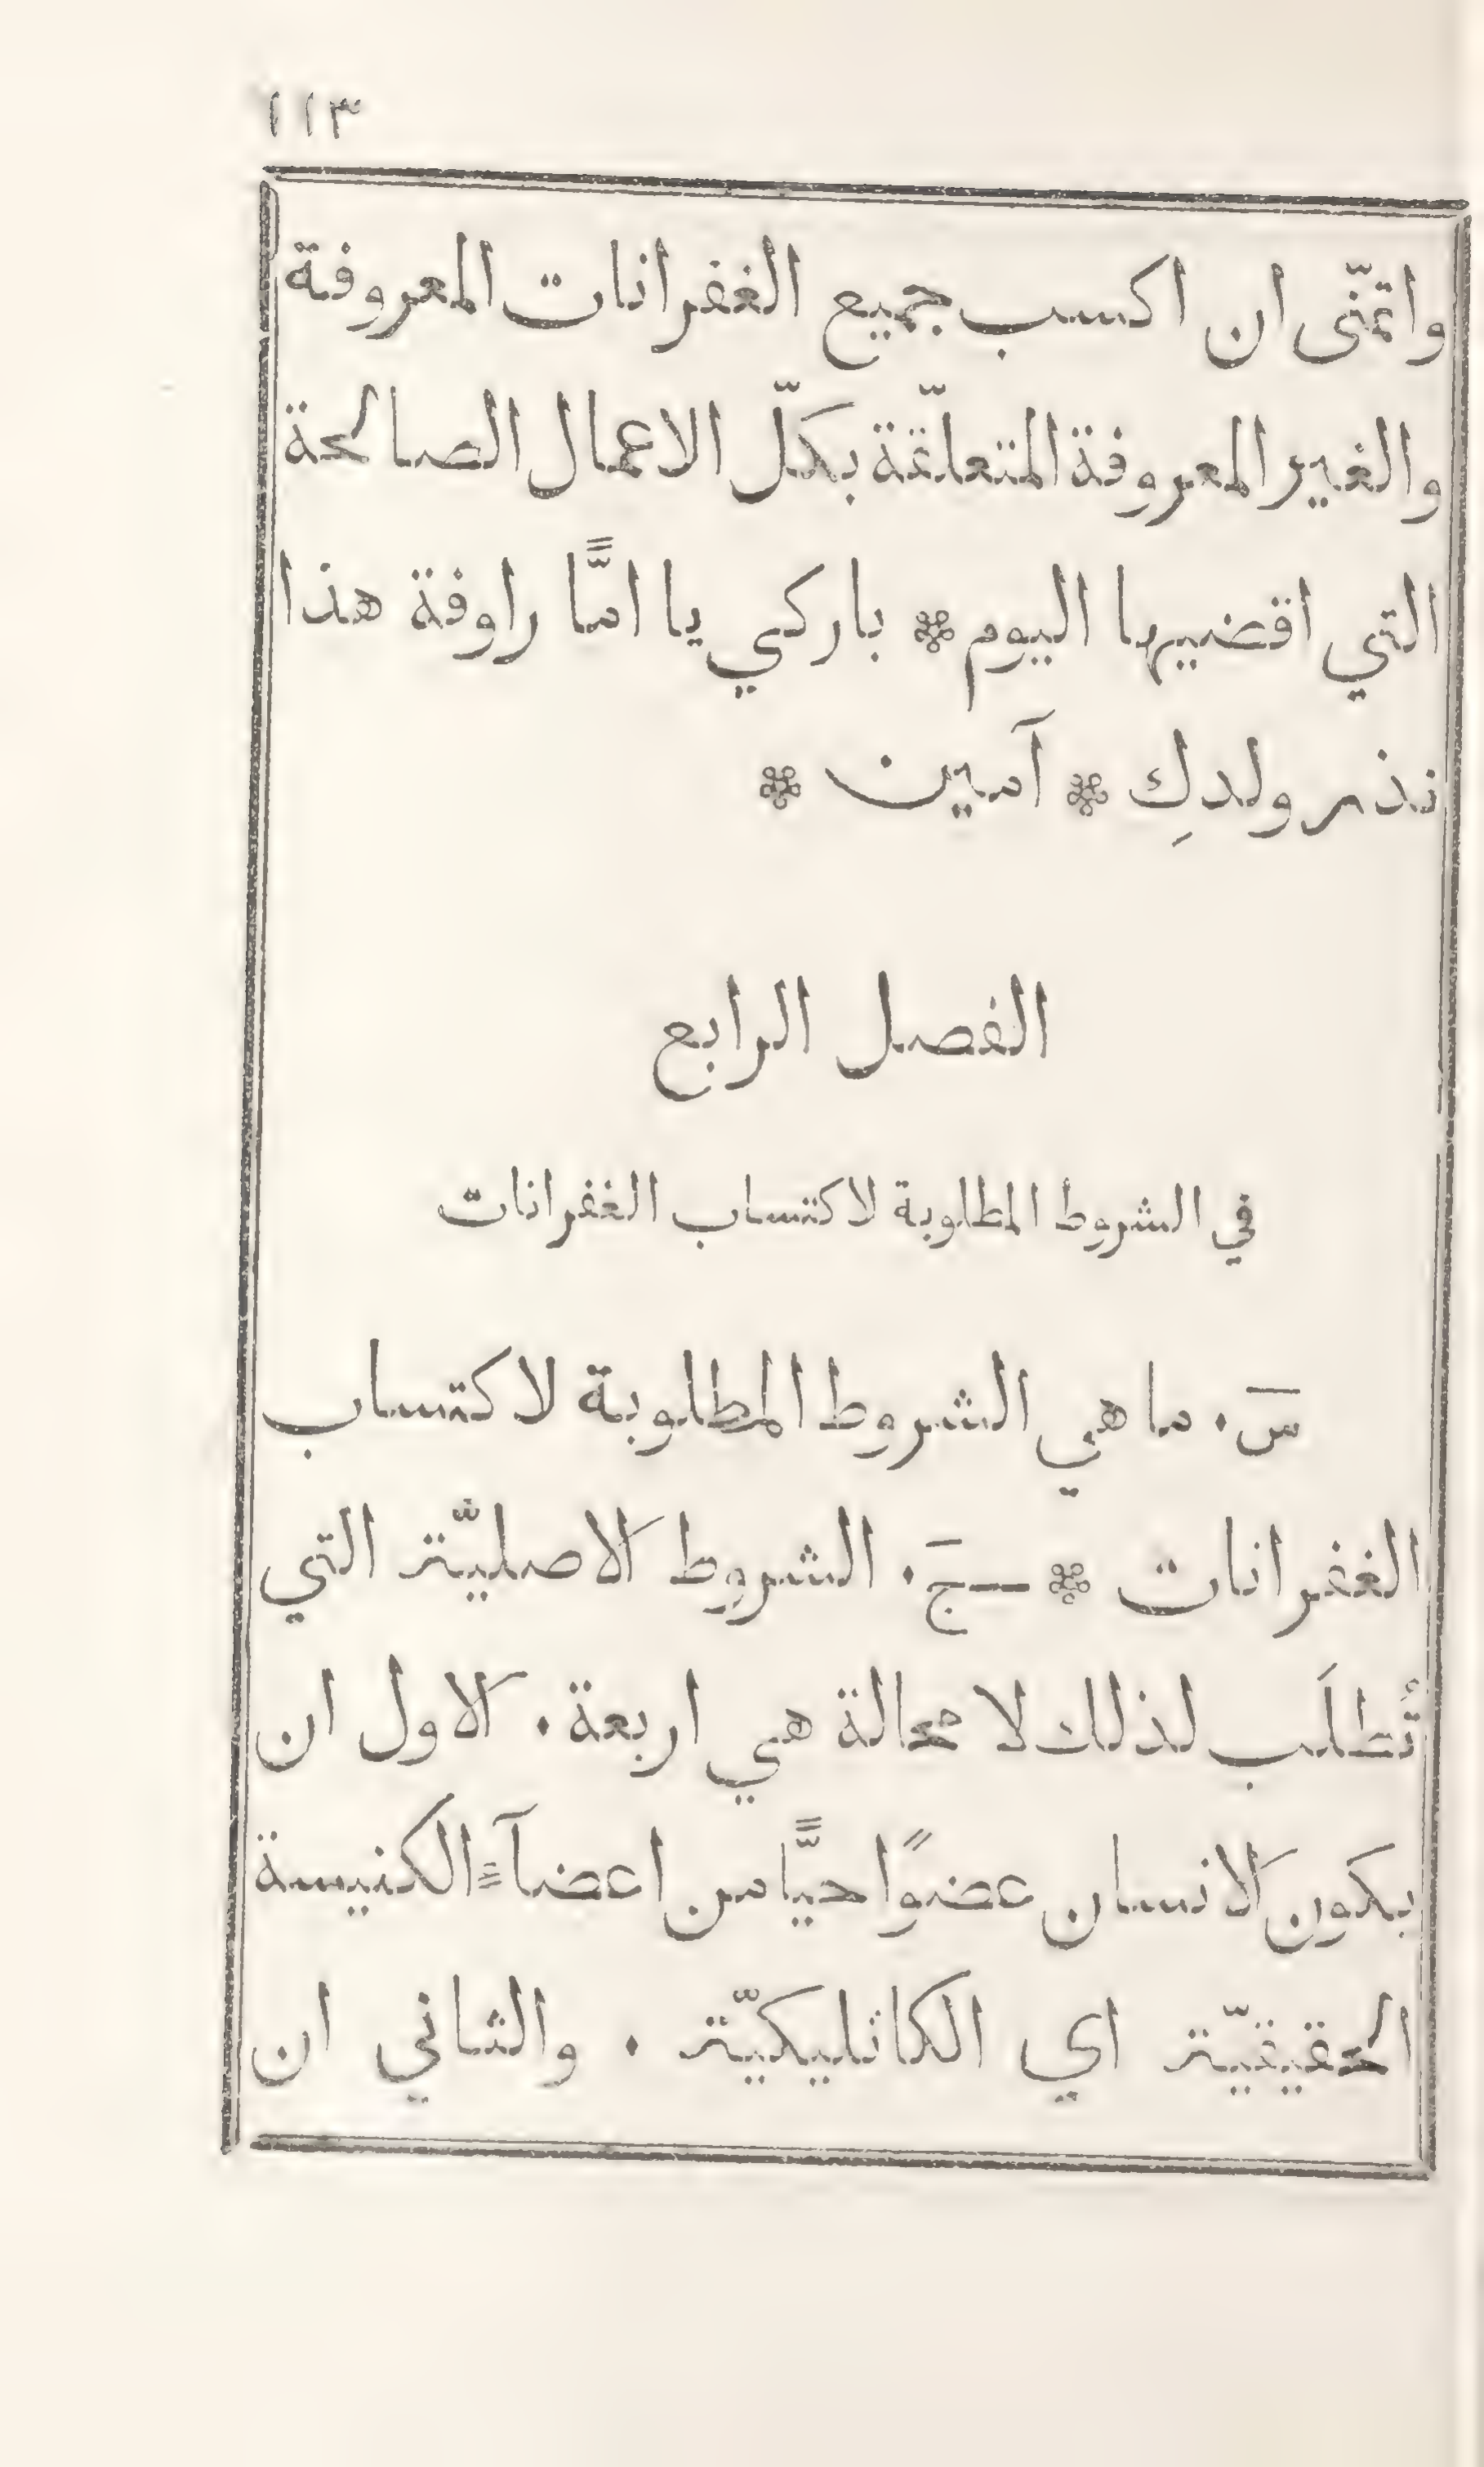 ١١٣
واتمنّى ان اكسب جميع الغفرانات المعروفة
والغير المعروفة المتعلّقة بكلّ الاعمال الصالحة
التي اقضيها اليوم ❊ باركي يا امًّا راوفة هذا
نذر ولدكِ ❊ آمين ❊
الفصل الرابع
في الشروط المطلوبة لاكتساب الغفرانات
سَ. ما هي الشروط المطلوبة لاكتساب
الغفرانات ❊ — جَ. الشروط الاصليّة التي
تُطلَب لذلك لا محالة هي اربعة. الاول ان
يكون الانسان عضوًا حيًّا من اعضآءِ الكنيسة
الحقيقيّة اي الكاثليكيّة. والثاني ان